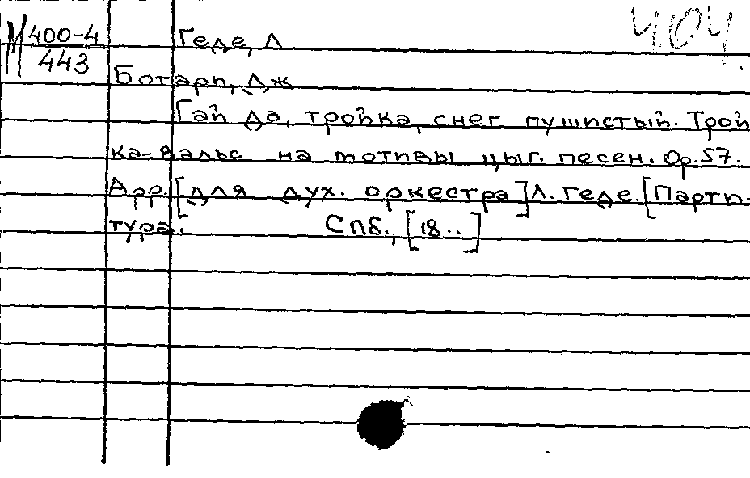 М 400-4 Геде, Л 404.
443
Ботарп, Дж
Гай да, тройка, снег пушистый. Трой
ка-вальс на мотивы цыг. песен. Op. 57.
Арр. [для дух. оркестра] Л. Геде. [Парти-
тура. Спб., [18..]